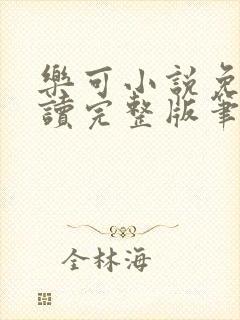 樂可小說免
讀完整版筆
全林海